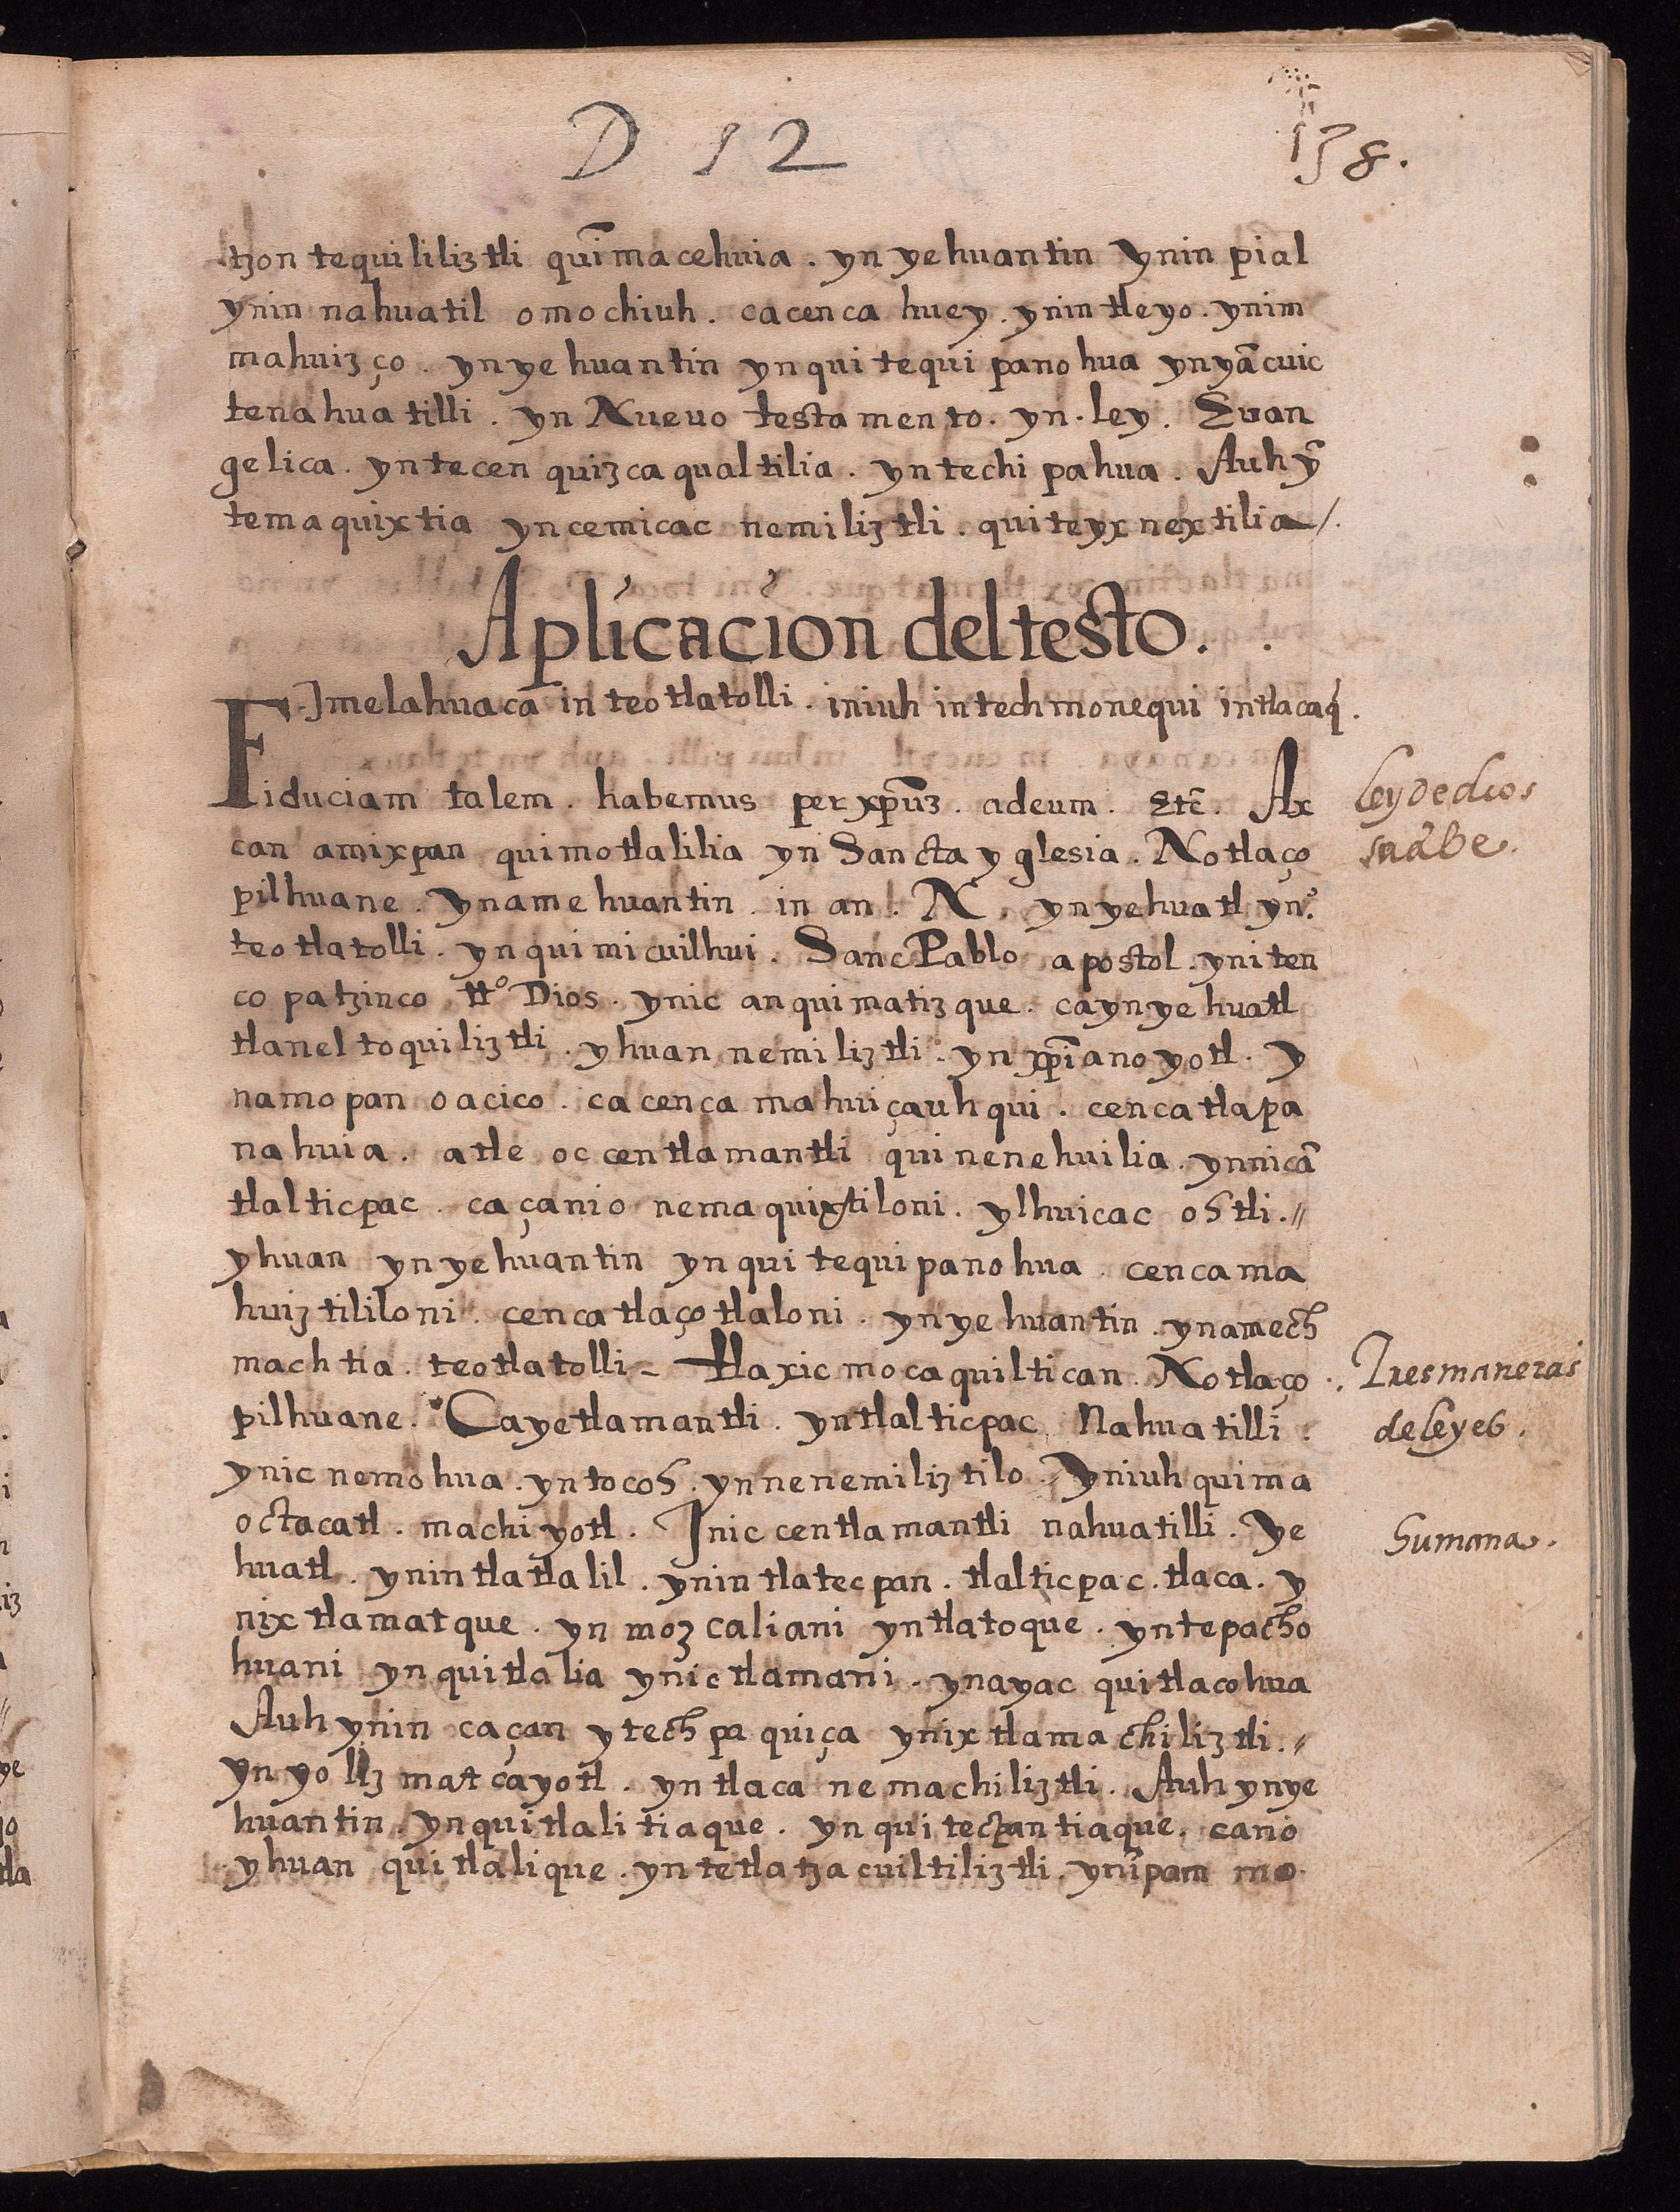 D 12
138.
tzon tequililiztli quĩmacehuia. yn yehuantin ynin pial
ynin nahuatil omochiuh. cacenca huey. ynin tleyo. ynim
mahuizço. ynyehuantin ynquitequipanohua ynyãcuic
tenahuatilli. yn Nueuo testamento. yn. ley. Euan
gelica. yntecenquizcaqualtilia. yntechipahua. Auh ỹ
temaquixtia yncemicac nemiliztli. quiteyxnextilia/.
Aplicacion del testo.
Jmelahuacã in teotlatolli. iniuh intechmonequi intlacaq̃.
Fiduciam talem. habemus per xp̃uz. adeum. Etc̃. Ax
can amixpan quimotlalilia yn Sancta yglesia. Notlaço
pilhuane. ynamehuantin. in an. N. ynyehuatl yn.
teotlatolli. ynquimicuilhui. Sanc Pablo apostol. yniten
copatzinco tt.º Dios. ynic anquimatizque. caynyehuatl
tlaneltoquiliztli. yhuan nemiliztli. yn xp̃ianoyotl. y
namopan oacico. cacenca mahuiçauhqui. cencatlapa
nahuia. atle occentlamantli quinenehuilia. ynnicã
tlalticpac. caçanio nemaquixtiloni. ylhuicac ohtli.//
yhuan ynyehuantin ynquitequipanohua. cencama
huiztililoni. cencatlaçotlaloni. ynyehuantin. ynamech
machtia. teotlatolli - tlaxicmocaquiltican. Notlaço
pilhuane. Cayetlamantli. yntlalticpac Nahuatilli.
ynic nemohua. yntoconh. ynnenemiliztilo. Yniuhquima
octacatl. machiyotl. Jnic centlamantli nahuatilli. Ye
huatl. ynintlatlalil. ynintlatecpan. tlalticpac. tlaca. y
nixtlamatque. yn mozcaliani yntlatoque. yntepacho
huani ynquitlalia ynictlamani. ynayac quitlacohua
Auh ynin caçan ytechpa quiça ynixtlamachiliztli.//
yn yoliizmatcayotl. yntlaca nemachiliztli. Auh ynye
huantin. ynquitlalitiaque. ynquitecpantiaque. canõ
yhuan quitlalique. yntetlatzacuiltiliztli. ynĩpam mo
Ley de dios
suabe.
Tres maneras
de leyes.
humana.